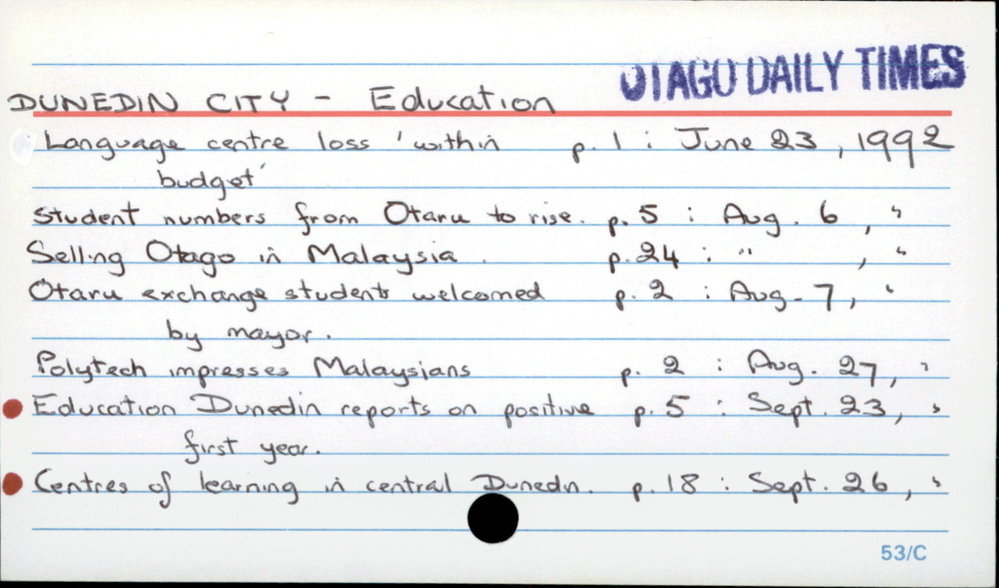 OTAGO DAILY TIMES
DUNEDIN CITY - Education
Language centre loss 'within p. 1 : June 23, 1992
budget'
Student numbers from Otaru to rise. p. 5 : Aug. 6, "
Selling Otago in Malaysia. p. 24 : " , "
Otaru exchange students welcomed p. 2 : Aug. 7, "
by mayor.
Polytech impresses Malaysians p. 2 : Aug. 27, "
Education Dunedin reports on positive p. 5 : Sept. 23, "
first year.
Centres of learning in central Dunedn. p. 18 : Sept. 26, "
53/C